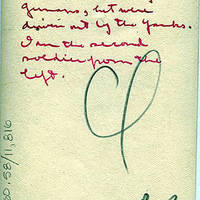 Germans, but were
driven out by the Yanks.
I am the second
soldier from the
left.
58/11,816